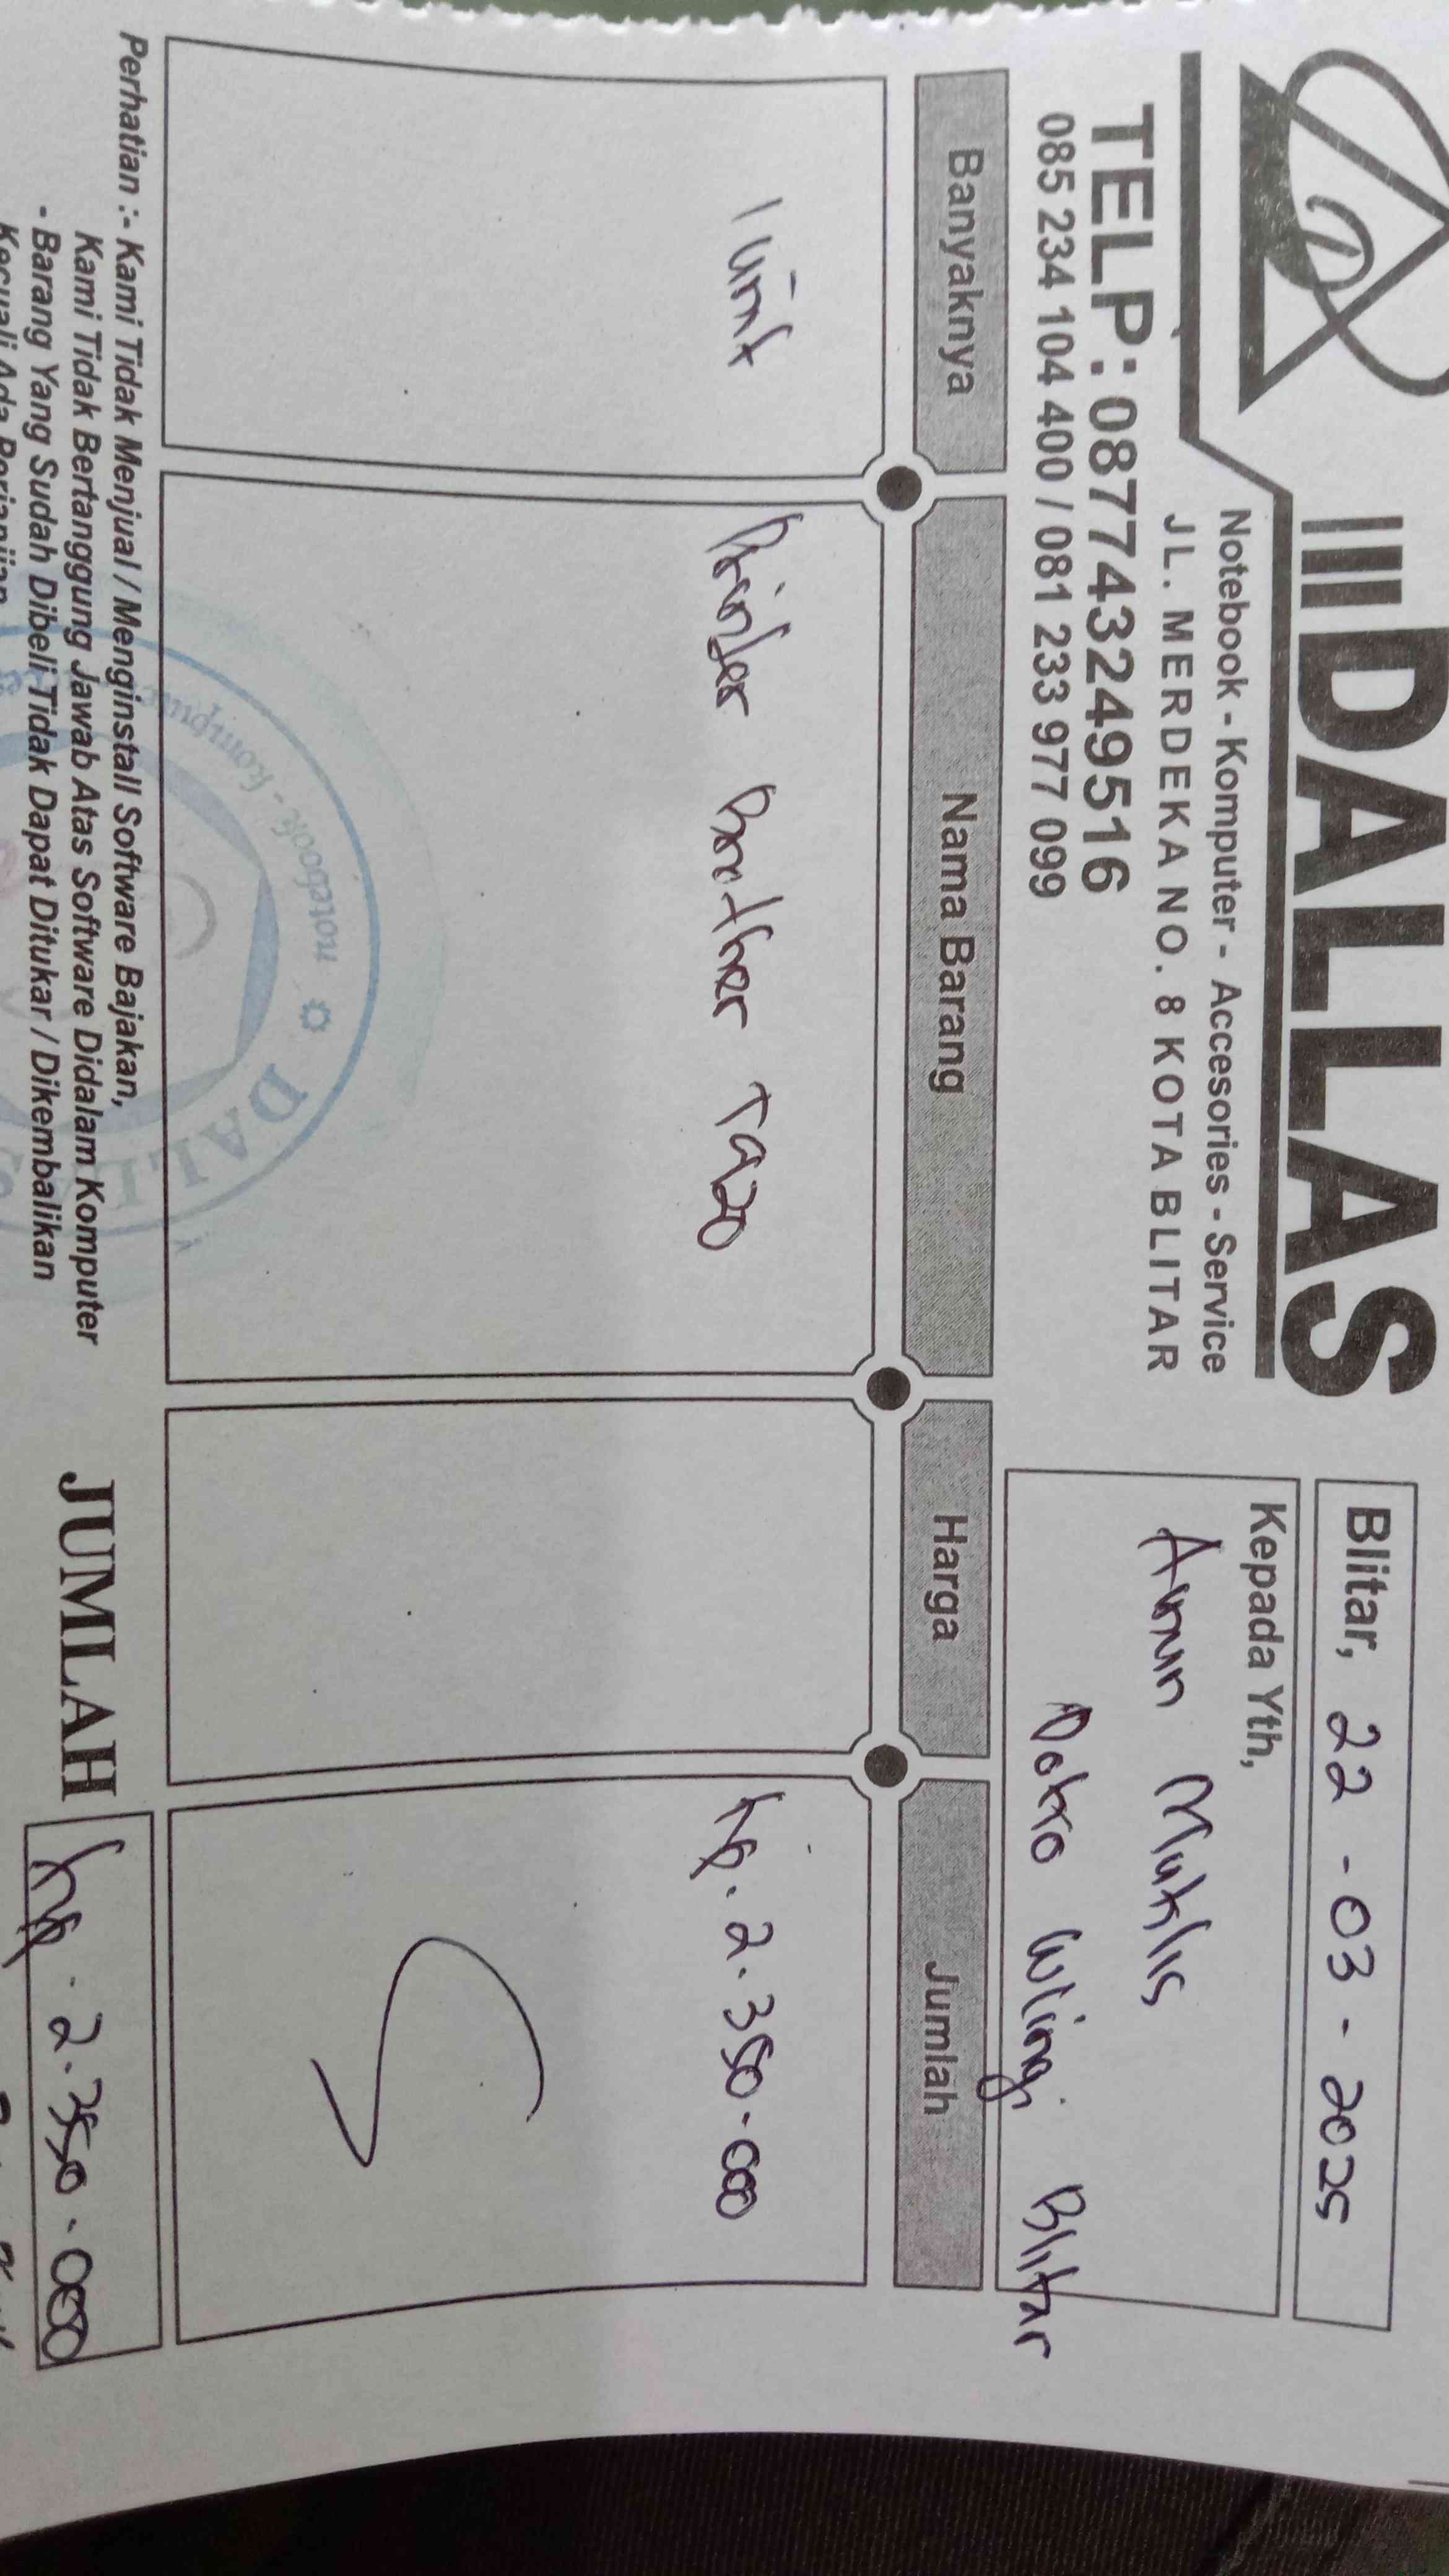 DALLAS
Notebook - Komputer - Accesories - Service
JL. MERDEKA NO. 8 KOTA BLITAR
TELP: 087743249516
085 234 104 400 / 081 233 977 099
Blitar, 22 - 03 - 2025
Kepada Yth,
Muklis
Doko Wlingi Blitar
Banyaknya Nama Barang Harga Jumlah
1 unit Printer Brother T920 Rp. 2.350.000
notebook - kompu
DALLAS
Perhatian :- Kami Tidak Menjual / Menginstall Software Bajakan,
Kami Tidak Bertanggung Jawab Atas Software Didalam Komputer
- Barang Yang Sudah Dibeli Tidak Dapat Ditukar / Dikembalikan
Kecuali Ada Perjanjian
JUMLAH Rp. 2.350.000